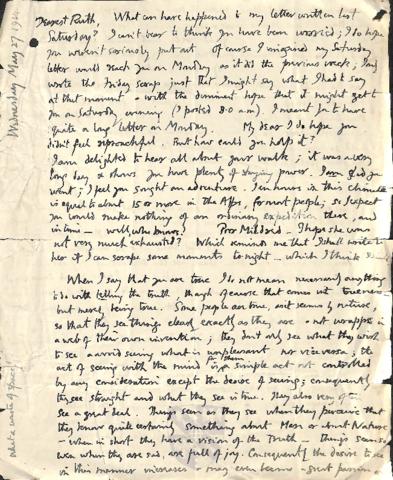 Wednesday May 27
Dearest Ruth, What can have happened to my letter written last
Saturday? I can't bear to think you have been worried; I do hope
you weren't seriously put out. Of course I imagined my Saturday
letter would reach you on Monday as it did the previous week; I only
wrote the Friday scrap just that I might say what I had to say
at that moment & with the dimmest hope that it might get to
you on Saturday evening (I posted 8.0 a.m). I meant you to have
quite a long letter on Monday. My dear I do hope you
didn't feel reproachful. But how could you help it?
I am delighted to hear all about your walk; it was a very
long day & shows you have plenty of staying power. I am glad you
went; I feel you sought an adventure. Ten hours in this climate
is equal to about 15 or more in the Alps, for most people; so I expect
you would make nothing of an ordinary expedition there, and
in time — well, who knows? Poor Mildred — I hope she was
not very much exhausted? Which reminds me that I shall write to
her if I can scrape some moments to-night — which I think
When I say that you are true I do not mean necessarily anything
to do with telling the truth, though of course that comes into trueness —
but merely being true. Some people are true, as it seems by nature,
so that they see things clearly exactly as they are & not wrapped in
a web of their own invention; they don't only see what they wish
to see & avoid seeing what is unpleasant nor vice versa; the
act of seeing with the mind is for them a simple act not controlled
by any consideration except the desire of seeing; consequently
they see straight and what they see is true. They also very often
see a great deal. Things seen — they see when they perceive that
they know quite certainly something about Man or about Nature
— when in short they have a vision of the Truth — things seen so
even when they are sad, are full of joy. Consequently the desire to see
in this manner increases & may even become a great passion
What a waste of space!